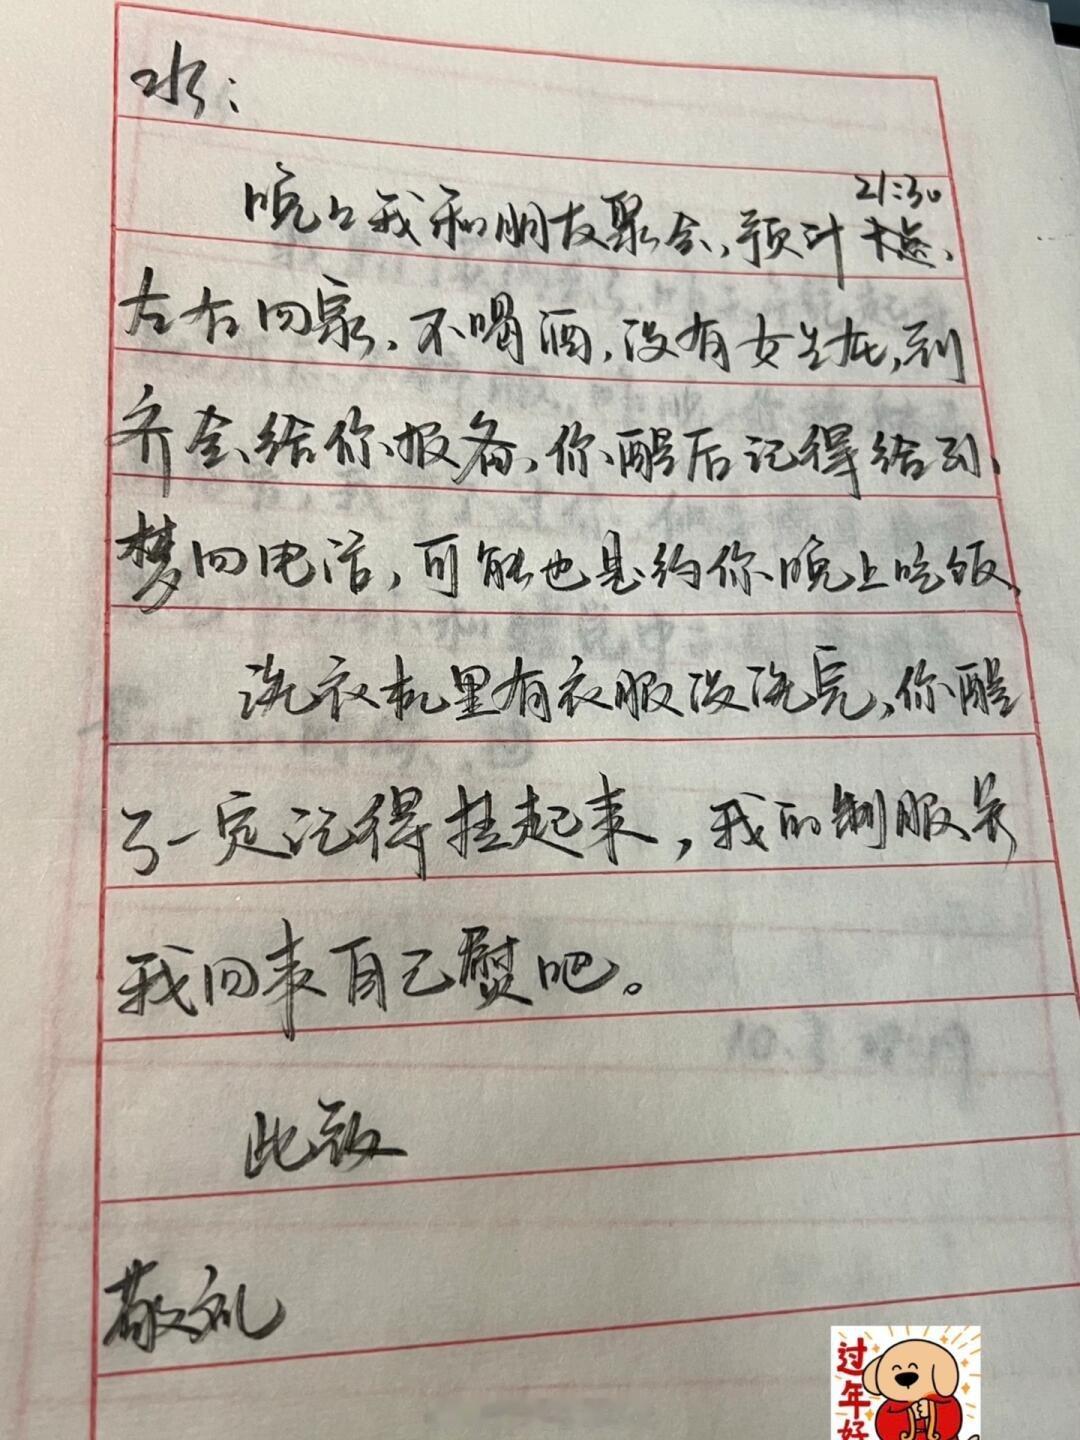 水：
21:30
晚上我和朋友聚会，预计十点
左右回家，不喝酒，没有女生在，到
齐会给你报备，你醒后记得给
梦回电话，可能也是约你晚上吃饭，
洗衣机里有衣服没洗完，你醒
了一定记得挂起来，我的制服等
我回来自己熨吧。
此致
敬礼
过年好